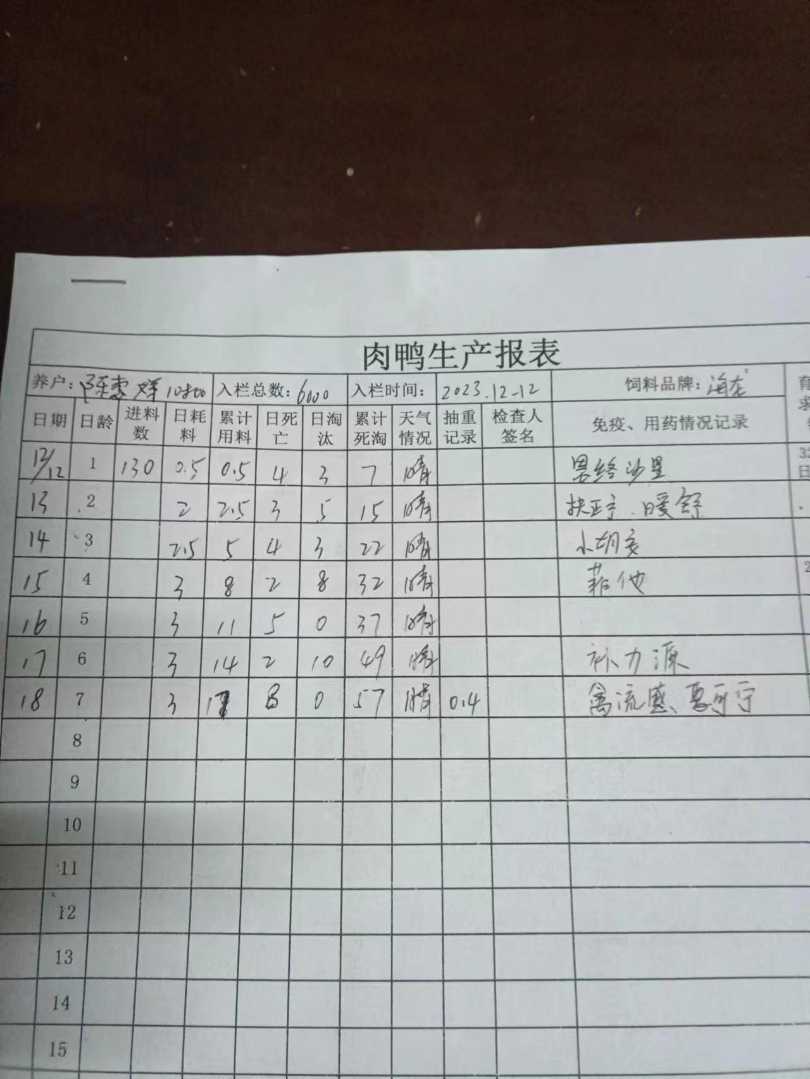 肉鸭生产报表
养户: 群 10800 入栏总数:6000 入栏时间: 2023.12-12 饲料品牌:海龙 育
日期 日龄 进料数 日耗料 累计用料 日死亡 日淘汰 累计死淘 天气情况 抽重记录 检查人签名 免疫、用药情况记录
12/12 1 130 0.5 0.5 4 3 7 晴 恩络沙星
13 2 2 2.5 3 5 15 晴 扶正宁.暖舒
14 3 2.5 5 4 3 22 晴
15 4 3 8 2 8 32 晴
16 5 3 11 5 0 37 晴
17 6 3 14 2 10 49 晴 补力源
18 7 3 17 8 0 57 晴 0.4 禽流感、
8
9
10
11
12
13
14
15